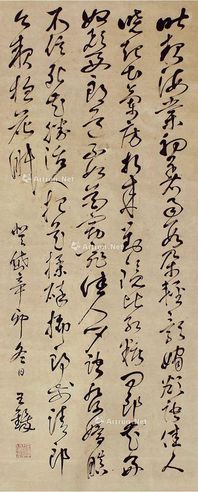 昨夜海棠初著雨數朵輕盈嬌欲語佳人
曉起出蘭房折來對鏡比紅粧問郎花好
奴顏好郎道不如花窈窕佳人聞語發嬌嗔
不信死花勝活人花揉碎擲郎前請郎
今夜伴花眠 歲辛卯冬日 王